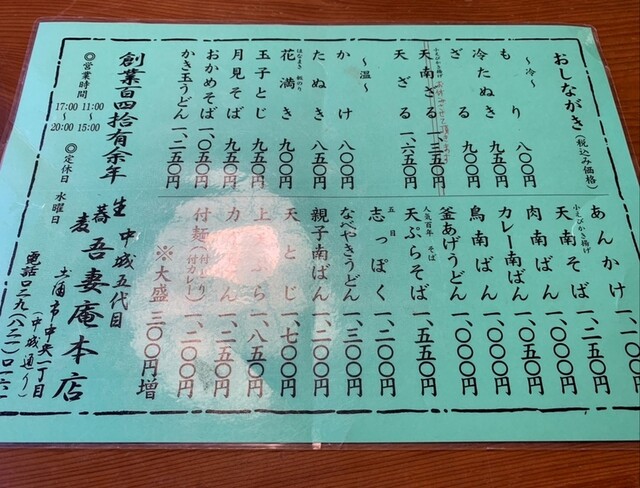 おしながき(税込み価格)
〜冷〜
もり 八〇〇円
ざる 九五〇円
冷たぬき 九〇〇円
ざる 九五〇円
小えびかき揚げ
天南ざる 一、三五〇円
天ざる 一、六五〇円
〜温〜
かけ 八〇〇円
たぬき 八五〇円
はなまき 板のり
花満き 九〇〇円
玉子とじ 九五〇円
月見そば 九五〇円
おかめそば 一、〇五〇円
かき玉うどん 一、二五〇円
あんかけ
小えびかき揚げ
天南そば 一、二五〇円
肉南ばん 一、一〇〇円
カレー南ばん 一、一〇〇円
鳥南ばん 一、〇〇〇円
釜あげうどん 一、〇〇〇円
人気百年 そば
天ぷらそば 一、五五〇円
五目
志っぽく 一、二〇〇円
なべやきうどん 一、三〇〇円
親子南ばん 一、二〇〇円
天とじ 一、七〇〇円
上 ぷら 一、八五〇円
カ ばん 一、二五〇円
付麺(付とり 付カレー) 一、二〇〇円
※大盛 三〇〇円増
創業百四拾有余年
中城五代目
生蕎麦 吾妻庵本店
◎営業時間 11:00〜15:00
17:00〜20:00
◎定休日 水曜日
土浦市中央一丁目
(中城通り)
電話〇二九八